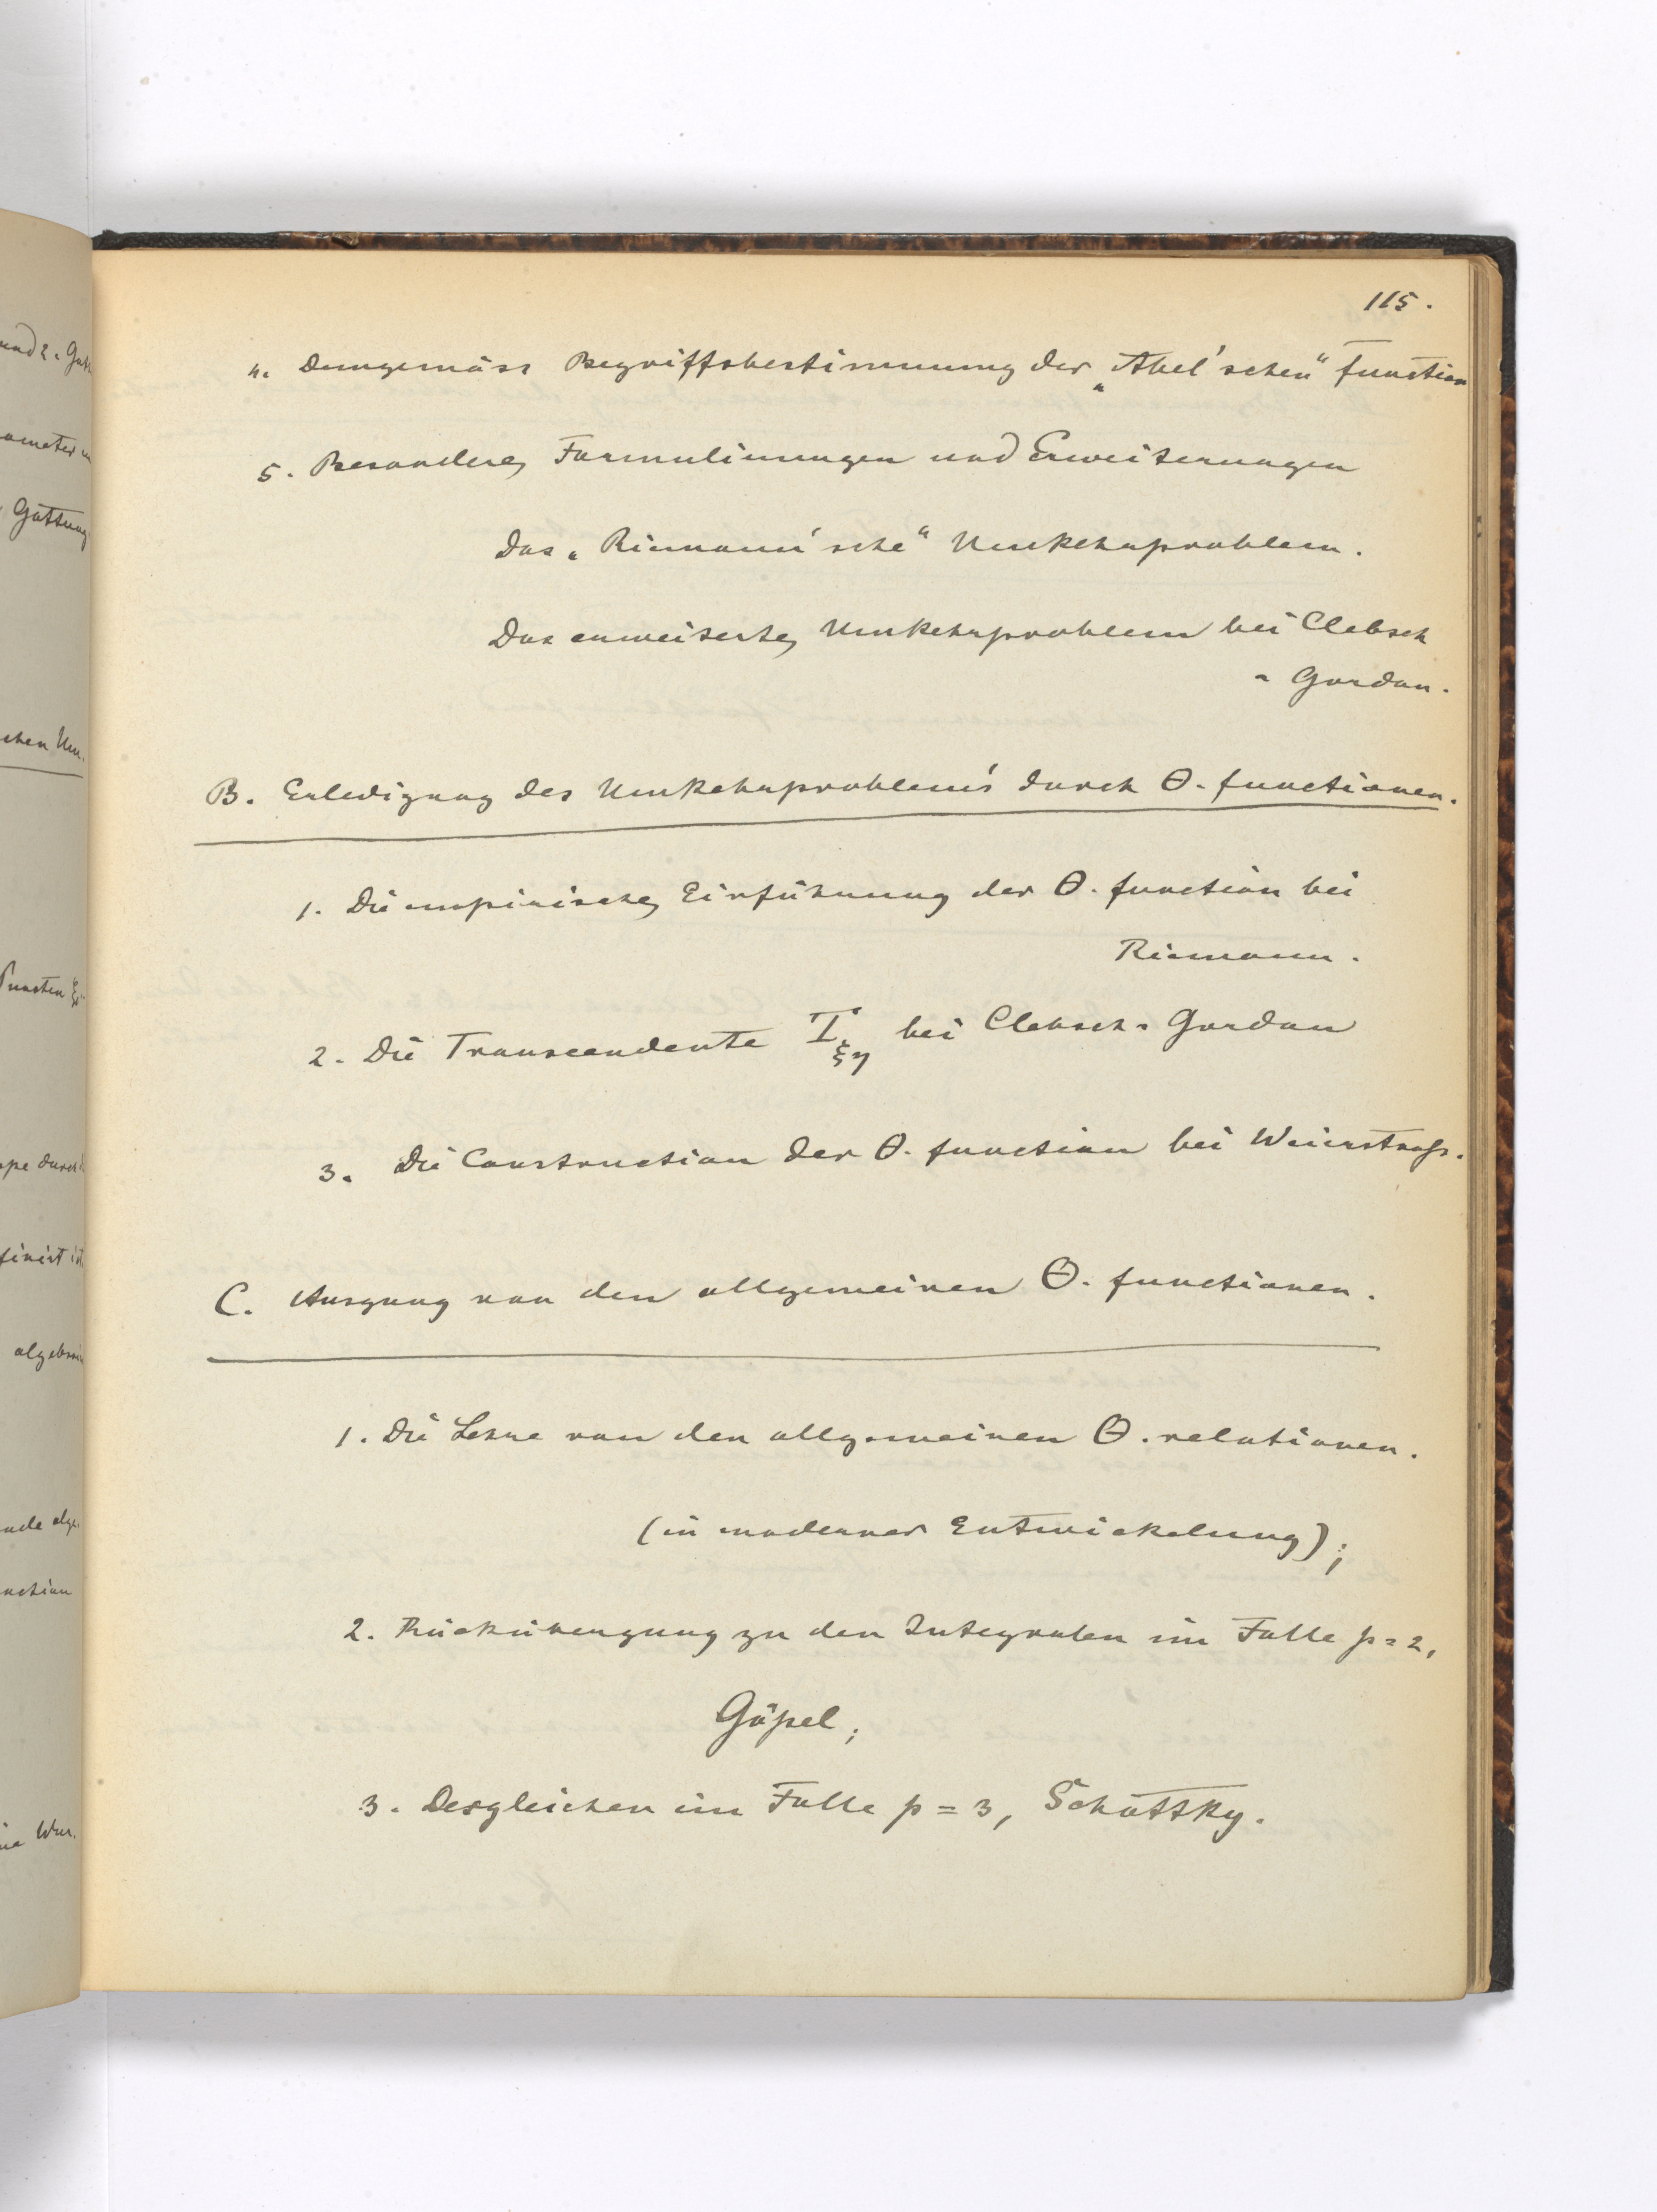 115.
4. Demgemäss Begriffsbestimmung der „Abel'schen“ function
5. Besondere Formulirungen und Erweiterungen
Das „Riemann'sche“ Umkehrproblem.
Das erweiterte Umkehrproblem bei Clebsch
- Gordan.
B. Erledigung des Umkehrproblem's durch Θ-functionen.
1. Die empirische Einführung der Θ-function bei
Riemann.
2. Die Transcendente T ξη bei Clebsch-Gordan
3. Die Construction der Θ-function bei Weierstraß.
C. Ausgang von den allgemeinen Θ-functionen.
1. Die Lehre von den allgemeinen Θ-relationen.
(in moderner Entwickelung);
2. Rückübergang zu den Integralen im Falle p=2,
Göpel;
3. Desgleichen im Falle p=3, Schottky.
und 2. Gatt
ometer
Gattung
schen Um
Puncten ξ
ppe durch
finirt ist
algebrai
nde alg
nction